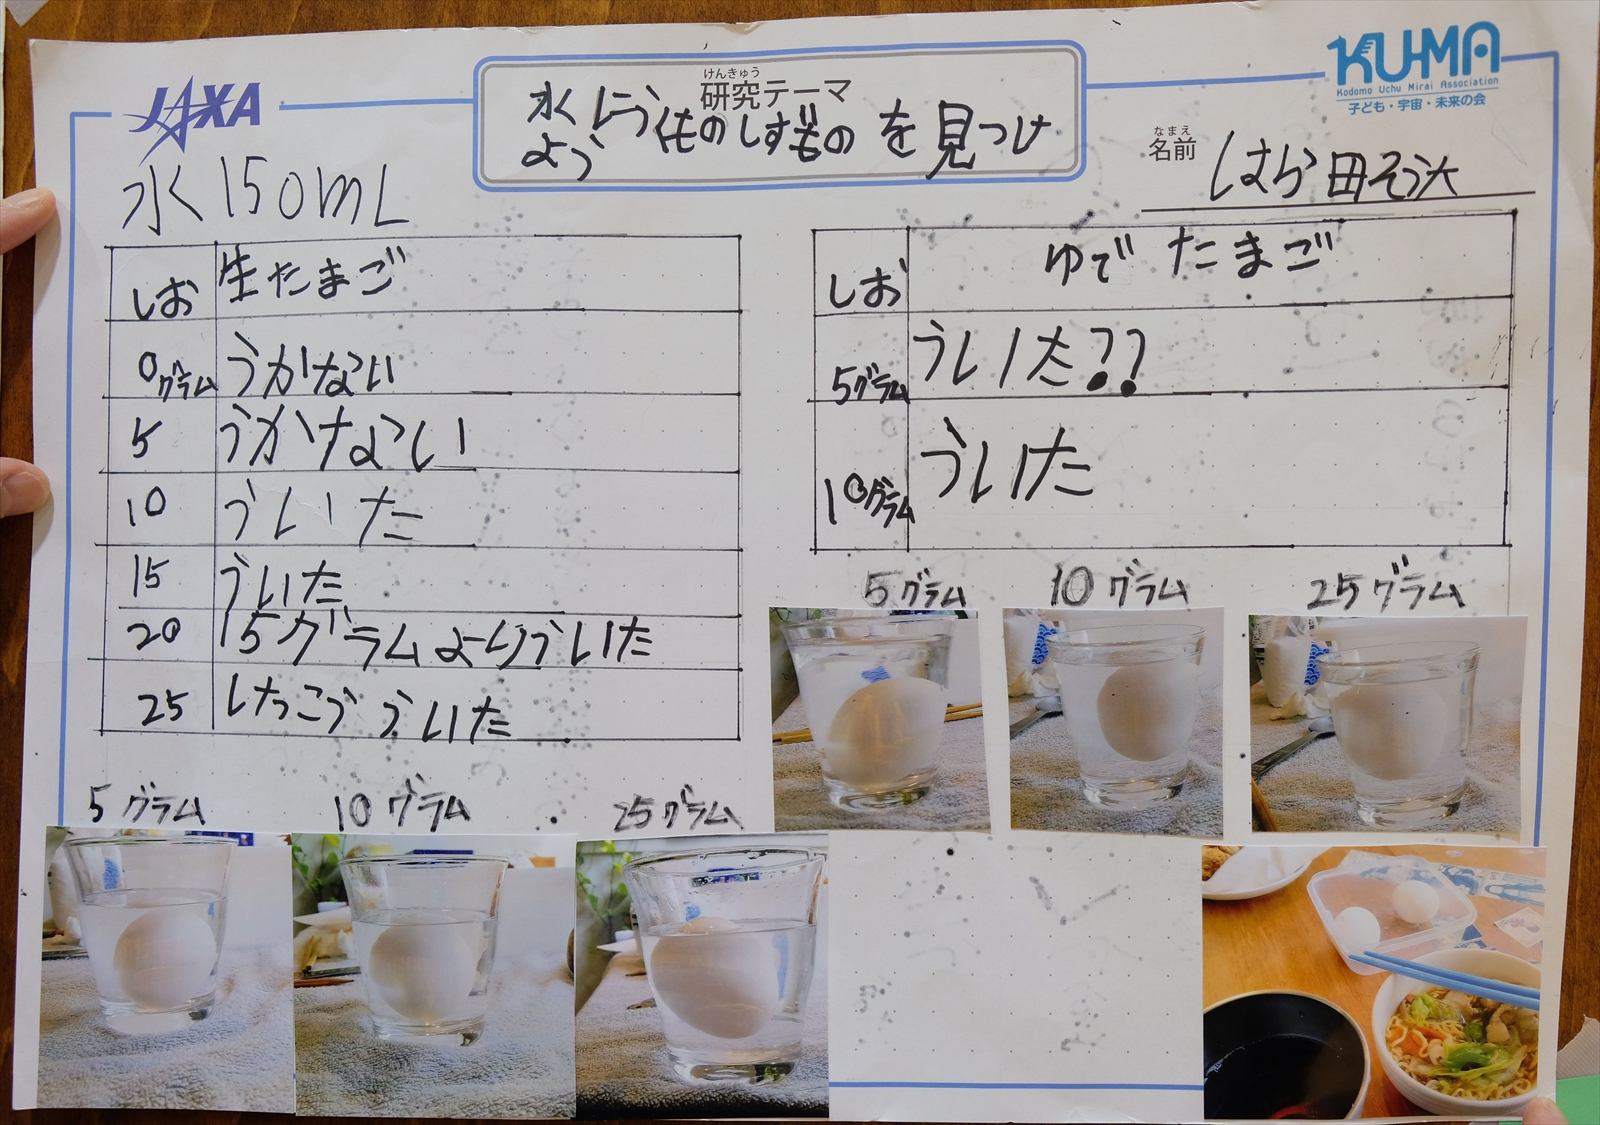 JAXA
けんきゅう
研究テーマ
水にうくものしずむものを見つけ
よう
KUMA
Kodomo Uchu Mirai Association
子ども・宇宙・未来の会
なまえ
名前
水150mL
しお 生たまご
0グラム うかない
5 うかない
10 ういた
15 ういた
20 15グラムよりういた
25 けっこう ういた
5グラム 10グラム 25グラム
しお ゆでたまご
5グラム ういた??
10グラム ういた
5グラム 10グラム 25グラム